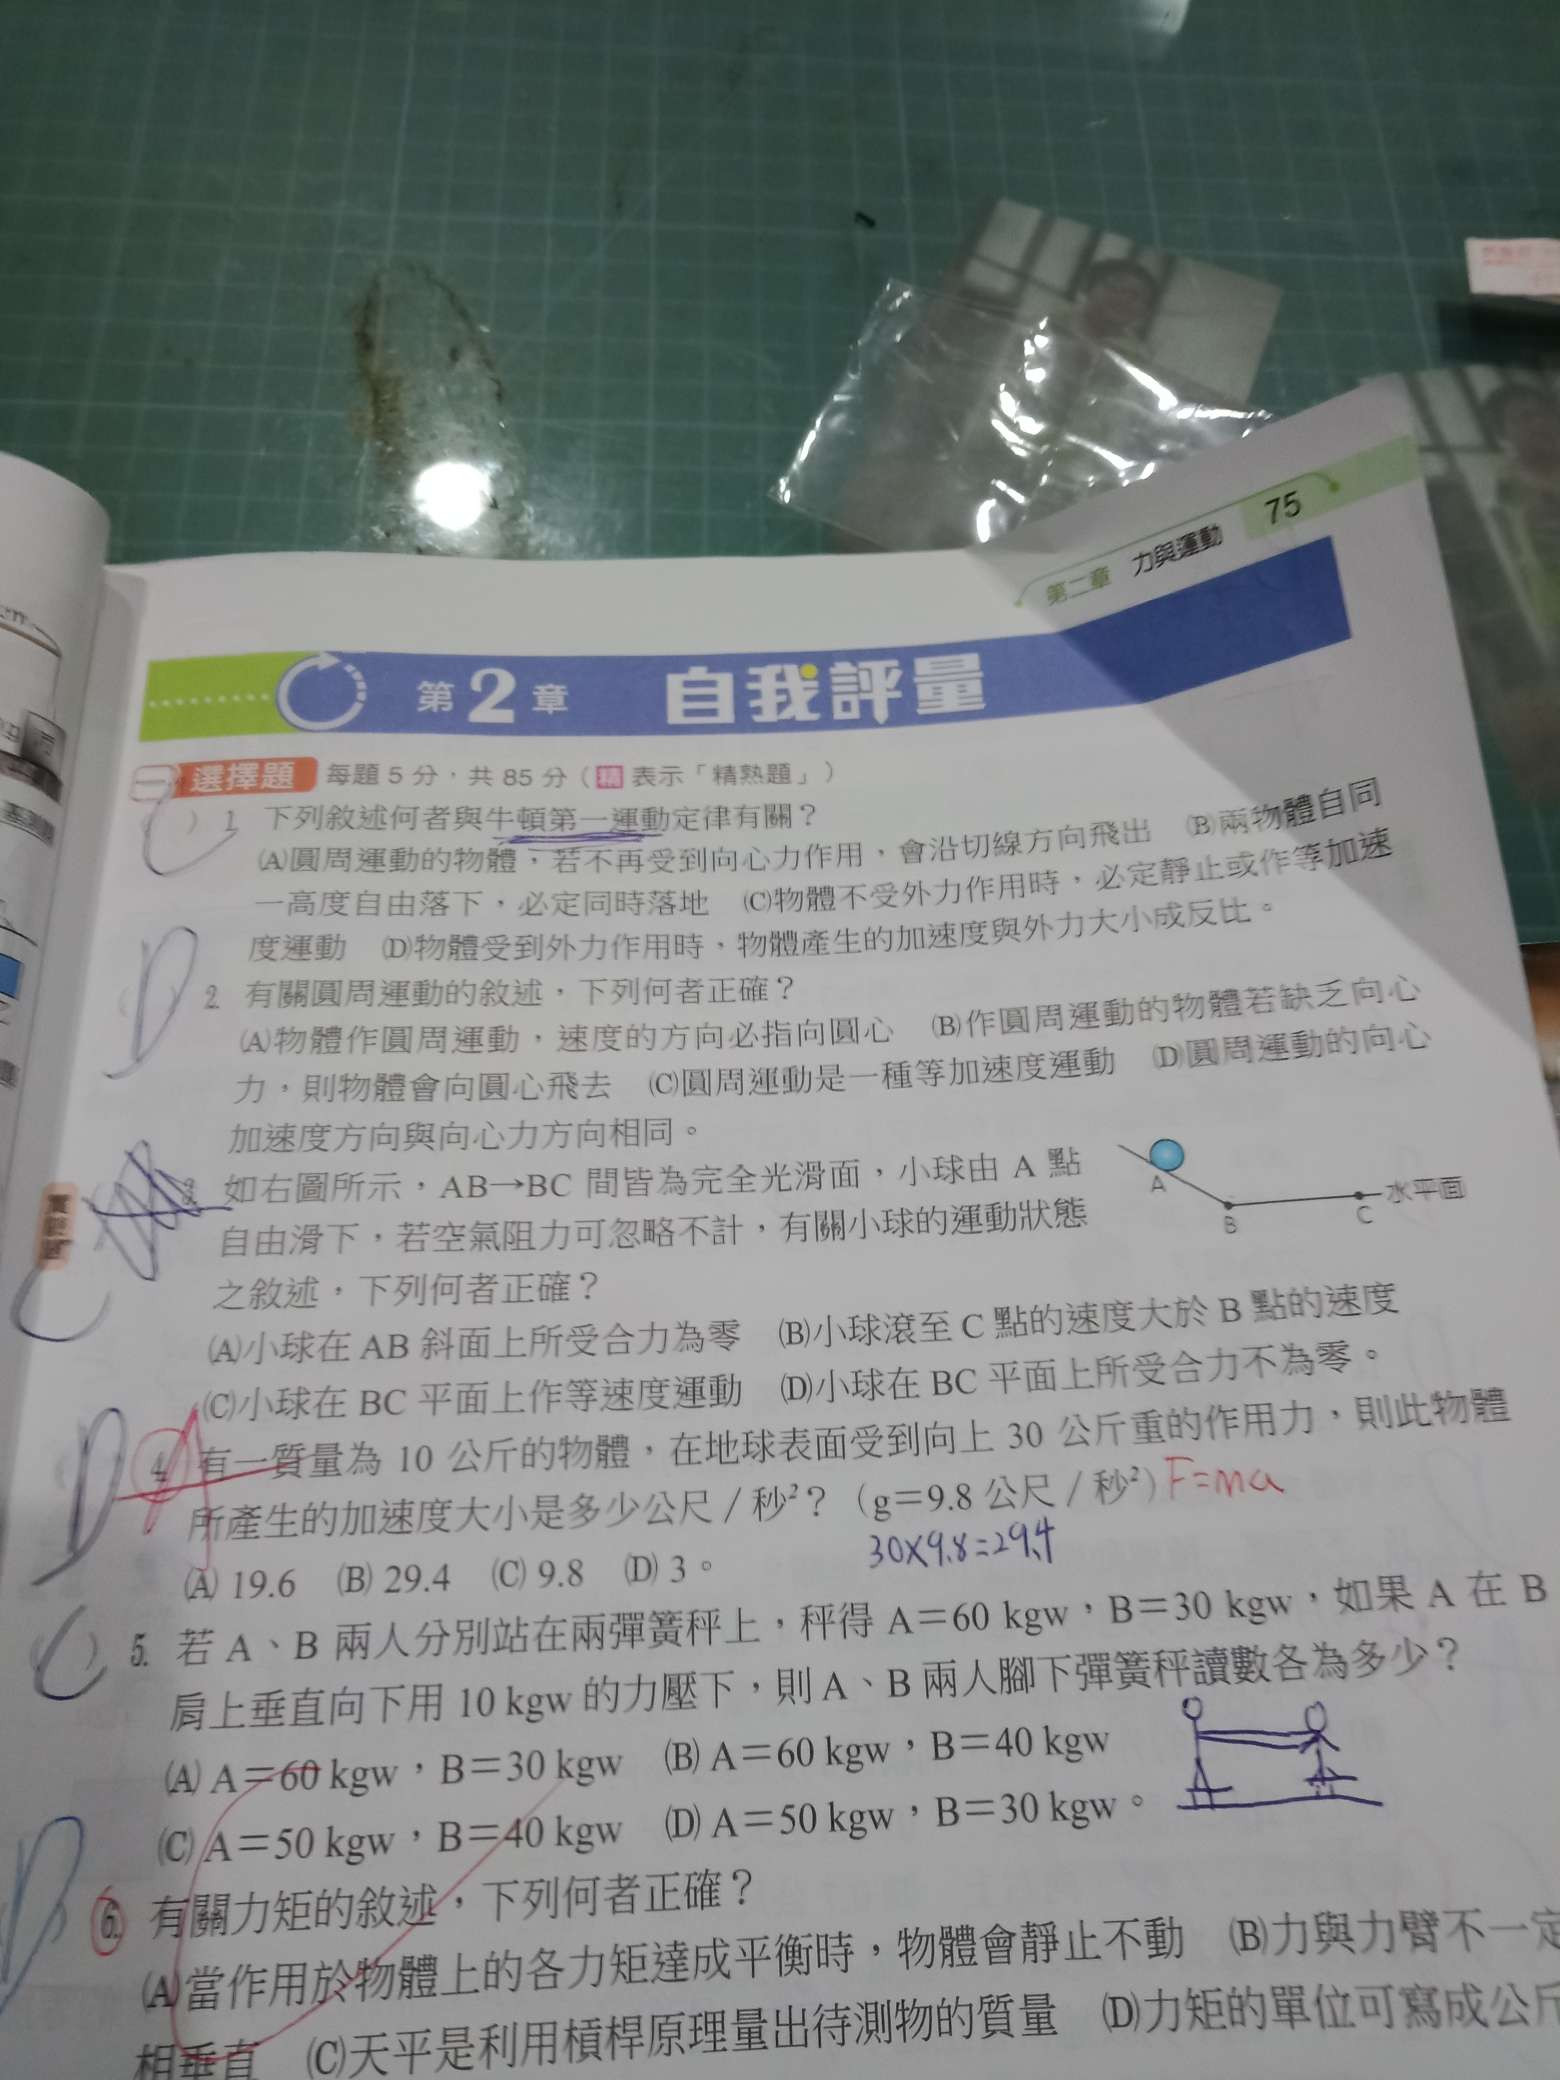 第二章 力與運動 75
第2章 自我評量
一 選擇題 每題5分，共85分（精表示「精熟題」）
C 1. 下列敘述何者與牛頓第一運動定律有關？
(A)圓周運動的物體，若不再受到向心力作用，會沿切線方向飛出 (B)兩物體自同
一高度自由落下，必定同時落地 (C)物體不受外力作用時，必定靜止或作等加速
度運動 (D)物體受到外力作用時，物體產生的加速度與外力大小成反比。
D 2. 有關圓周運動的敘述，下列何者正確？
(A)物體作圓周運動，速度的方向必指向圓心 (B)作圓周運動的物體若缺乏向心
力，則物體會向圓心飛去 (C)圓周運動是一種等加速度運動 (D)圓周運動的向心
加速度方向與向心力方向相同。
3. 如右圖所示，AB→BC 間皆為完全光滑面，小球由 A 點
自由滑下，若空氣阻力可忽略不計，有關小球的運動狀態
C 之敘述，下列何者正確？
A B C 水平面
(A)小球在 AB 斜面上所受合力為零 (B)小球滾至 C 點的速度大於 B 點的速度
(C)小球在 BC 平面上作等速度運動 (D)小球在 BC 平面上所受合力不為零。
D A 4. 有一質量為 10 公斤的物體，在地球表面受到向上 30 公斤重的作用力，則此物體
所產生的加速度大小是多少公尺／秒²？（g＝9.8 公尺／秒²）F=ma
30×9.8=29.4
(A) 19.6 (B) 29.4 (C) 9.8 (D) 3。
C 5. 若 A、B 兩人分別站在兩彈簧秤上，秤得 A＝60 kgw，B＝30 kgw，如果 A 在 B
肩上垂直向下用 10 kgw 的力壓下，則 A、B 兩人腳下彈簧秤讀數各為多少？
(A) A＝60 kgw，B＝30 kgw (B) A＝60 kgw，B＝40 kgw
(C) A＝50 kgw，B＝40 kgw (D) A＝50 kgw，B＝30 kgw。
D 6. 有關力矩的敘述，下列何者正確？
(A)當作用於物體上的各力矩達成平衡時，物體會靜止不動 (B)力與力臂不一定
相垂直 (C)天平是利用槓桿原理量出待測物的質量 (D)力矩的單位可寫成公斤